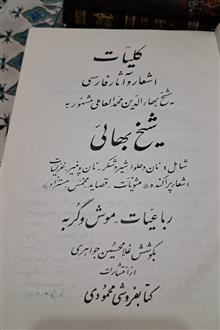 کلیات
اشعار و آثار فارسی
شیخ بهاءالدین محمد العاملی مشهور به
شیخ بهائی
شامل: نان و حلوا، شیر و شکر، نان و پنیر، غزلیات
اشعار پراکنده، مثنویات - قصاید، مخمس، مستزاد
رباعیات - موش و گربه
بکوشش غلامحسین جواهری
از انتشارات
کتابفروشی محمودی